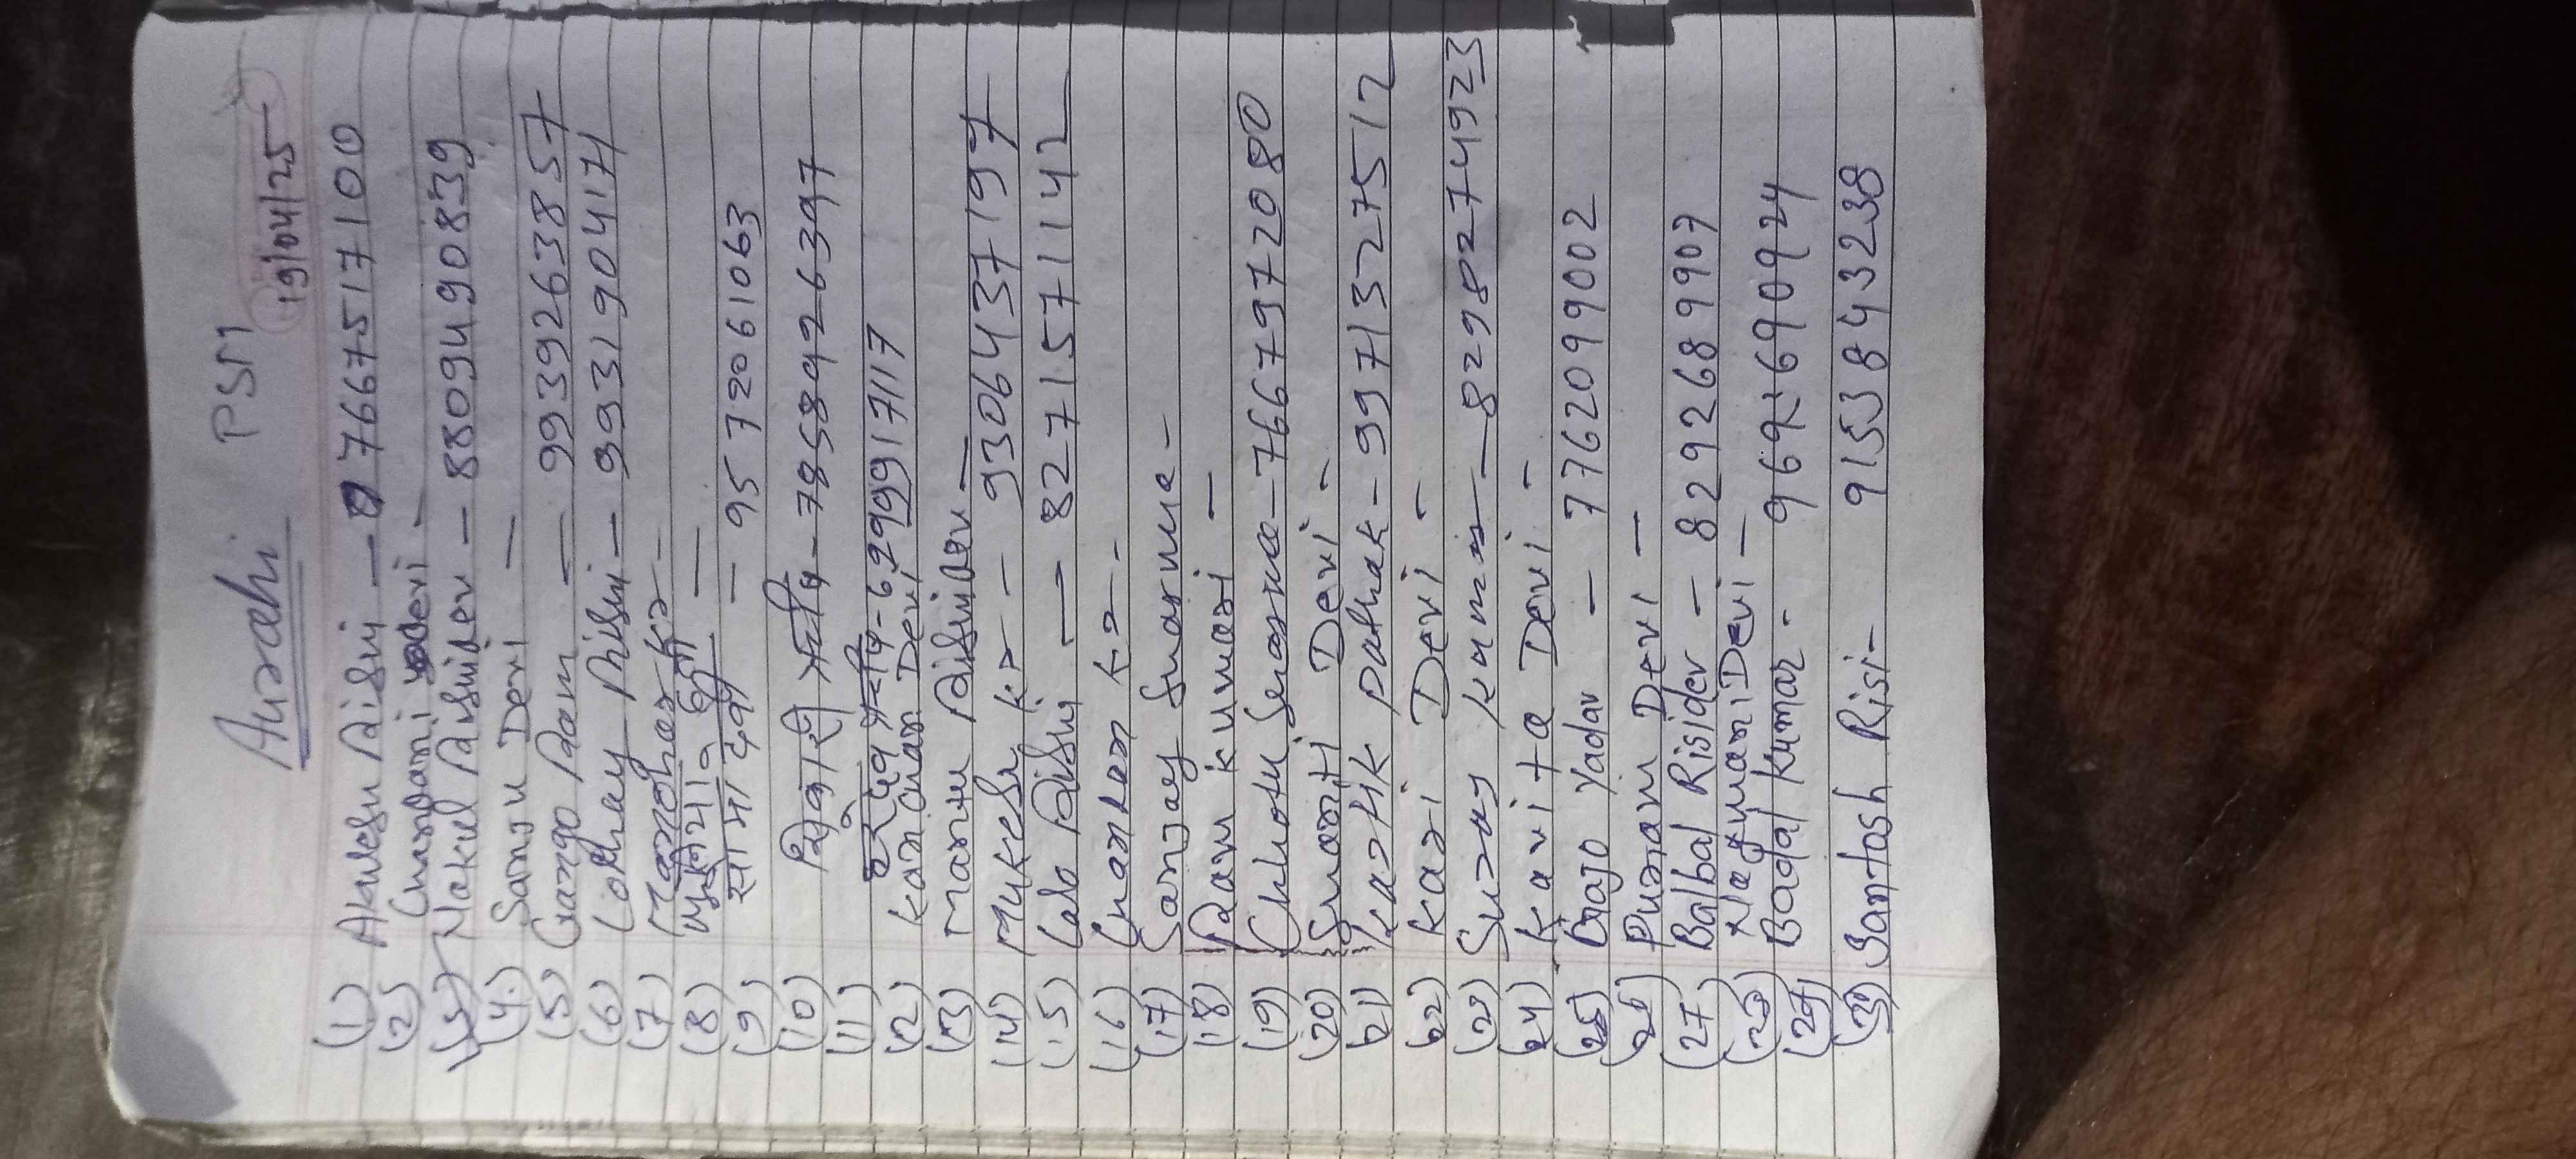 Aurahi PSM
19/04/25
(1) Akhilesh Rishi — 7667517100
(2) Chandani Devi -
(3) Nakul Rishidev - 8809490839
(4) Sanju Devi —
(5) Gango Ram — 9939263857
(6) Rishi — 9931904171
(7) Manohar Kr -
(8) देवी —
(9) सोमा देवी — 9572061063
(10) - 7858926397
(11) - 6299917117
(12) Kanchan Devi
(13) Rishidev —
(14) Mukesh Kr - 9306437197
(15) Lalo Rishi — 8271571142
(16) Chandan Kr -
(17) Sanjay Sharma -
(18) Ram Kumari —
(19) Chhotu Sharma - 7667972080
(20) Shanti Devi -
(21) Kartik Pathak - 9971327512
(22) Kari Devi -
(23) Suraj Kumar — 8298274923
(24) Kavita Devi -
(25) Brajo Yadav - 7762099002
(26) Punam Devi —
(27) Balbal Risidev - 8292689907
(28) Nagmani Devi —
(29) Badal Kumar -
(30) Santosh Risi - 9153843238